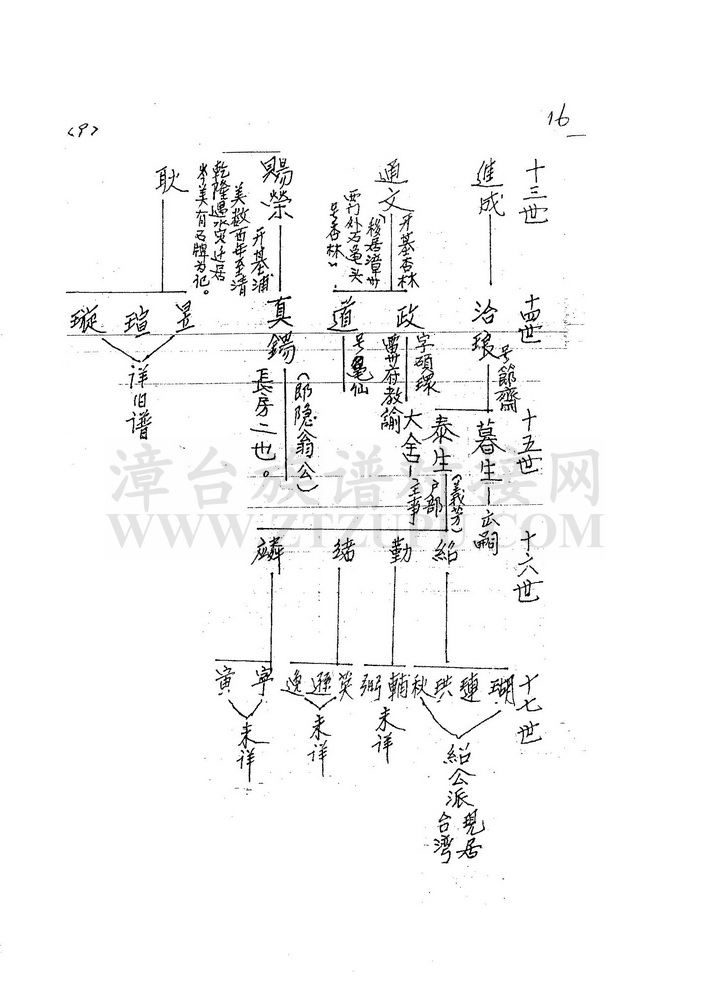 16
<9>
十三世
進成
通文
开基杏林
移居漳州
西门外石亀头
号杏林
賜榮
开基浦
美数百年至清
乾隆遇水灾迁居
岑美有石牌为记。
耿
十四世
治琅
号節齋
政
字碩環
雷州府教諭
道
号亀仙
真鍚
(即隐翁公)
長房二也。
昱
瑄
璇
詳旧谱
十五世
暮生-出嗣
泰生(義芳)
大舍-户部主事
十六世
紹
勤
緒
麟
十七世
瑚
璉
珙
秋
輔
弼
英
遜
逸
寧
寅
紹公派現居台湾
未详
未详
未详
漳台族谱对接网
WWW.ZTZUPU.COM